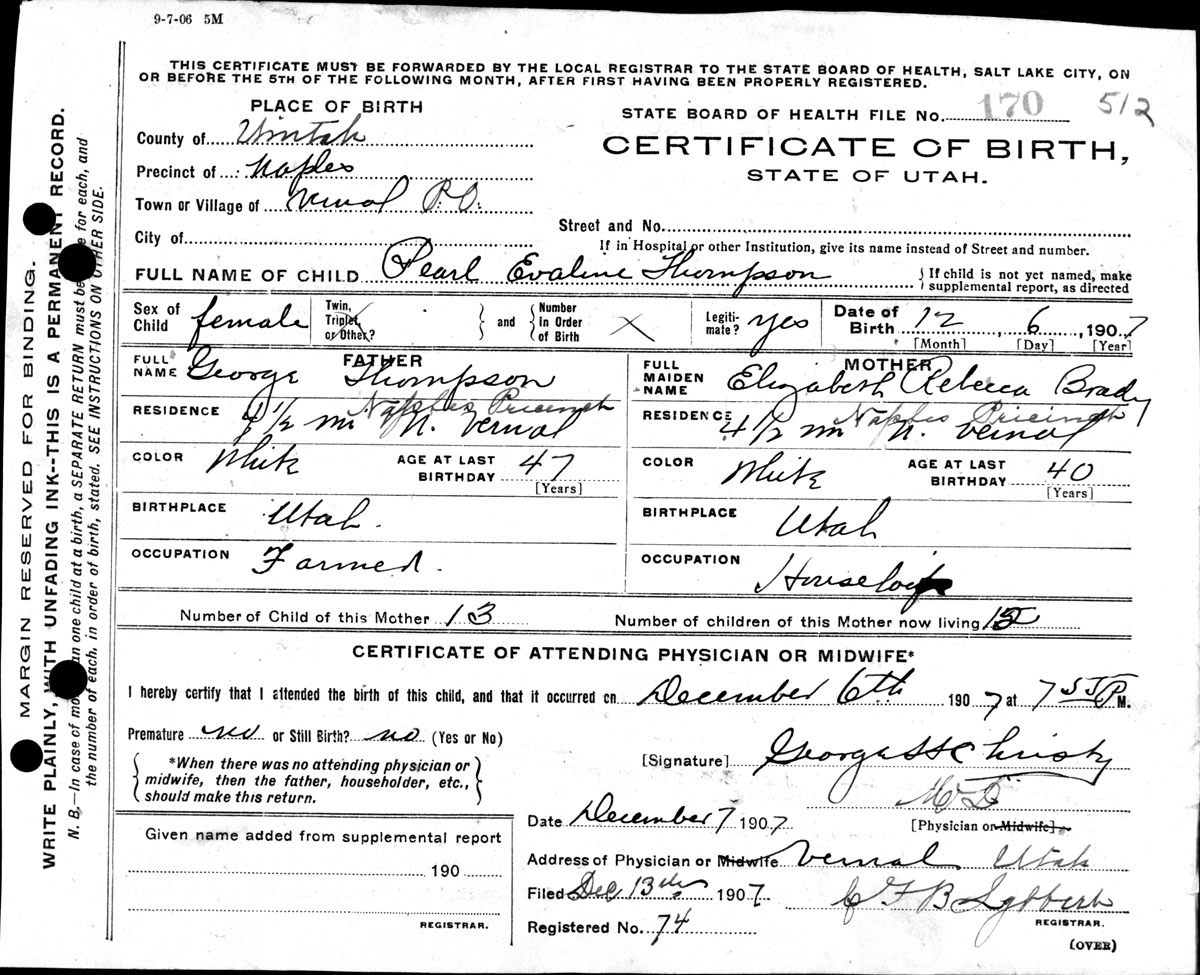 9-7-06 5M
THIS CERTIFICATE MUST BE FORWARDED BY THE LOCAL REGISTRAR TO THE STATE BOARD OF HEALTH, SALT LAKE CITY, ON
OR BEFORE THE 5TH OF THE FOLLOWING MONTH, AFTER FIRST HAVING BEEN PROPERLY REGISTERED.
PLACE OF BIRTH
STATE BOARD OF HEALTH FILE No. 170 512
County of Uintah
CERTIFICATE OF BIRTH,
STATE OF UTAH.
Precinct of Naples
Town or Village of Vernal P.O.
Street and No.
City of
If in Hospital or other Institution, give its name instead of Street and number.
FULL NAME OF CHILD Pearl Evaline Thompson
If child is not yet named, make
supplemental report, as directed
Sex of Child female
Twin, Triplet, or Other?
and
Number in Order of Birth X
Legitimate? yes
Date of Birth 12, 6, 1907
[Month] [Day] [Year]
FATHER
FULL NAME George Thompson
MOTHER
FULL MAIDEN NAME Elizabeth Rebecca Brady
RESIDENCE 4 1/2 mi N. Vernal
Naples Pricinct
RESIDENCE 4 1/2 mi N. Vernal
Naples Pricinct
COLOR White AGE AT LAST BIRTHDAY 47 [Years]
COLOR White AGE AT LAST BIRTHDAY 40 [Years]
BIRTHPLACE Utah.
BIRTHPLACE Utah
OCCUPATION Farmer.
OCCUPATION Housewife
Number of Child of this Mother 13
Number of children of this Mother now living
CERTIFICATE OF ATTENDING PHYSICIAN OR MIDWIFE*
I hereby certify that I attended the birth of this child, and that it occurred on December 6th 1907 at 7 P M.
Premature no or Still Birth? no (Yes or No)
*When there was no attending physician or
midwife, then the father, householder, etc.,
should make this return.
[Signature] George H Christy
M D
[Physician or Midwife]
Date December 7 1907
Given name added from supplemental report
190
REGISTRAR.
Address of Physician or Midwife Vernal Utah
Filed Dec 13th 1907
C F B Lybbert
REGISTRAR.
Registered No. 74
(OVER)
MARGIN RESERVED FOR BINDING.
WRITE PLAINLY, WITH UNFADING INK--THIS IS A PERMANENT RECORD.
N. B.—In case of more than one child at a birth, a SEPARATE RETURN must be made for each, and
the number of each, in order of birth, stated. SEE INSTRUCTIONS ON OTHER SIDE.